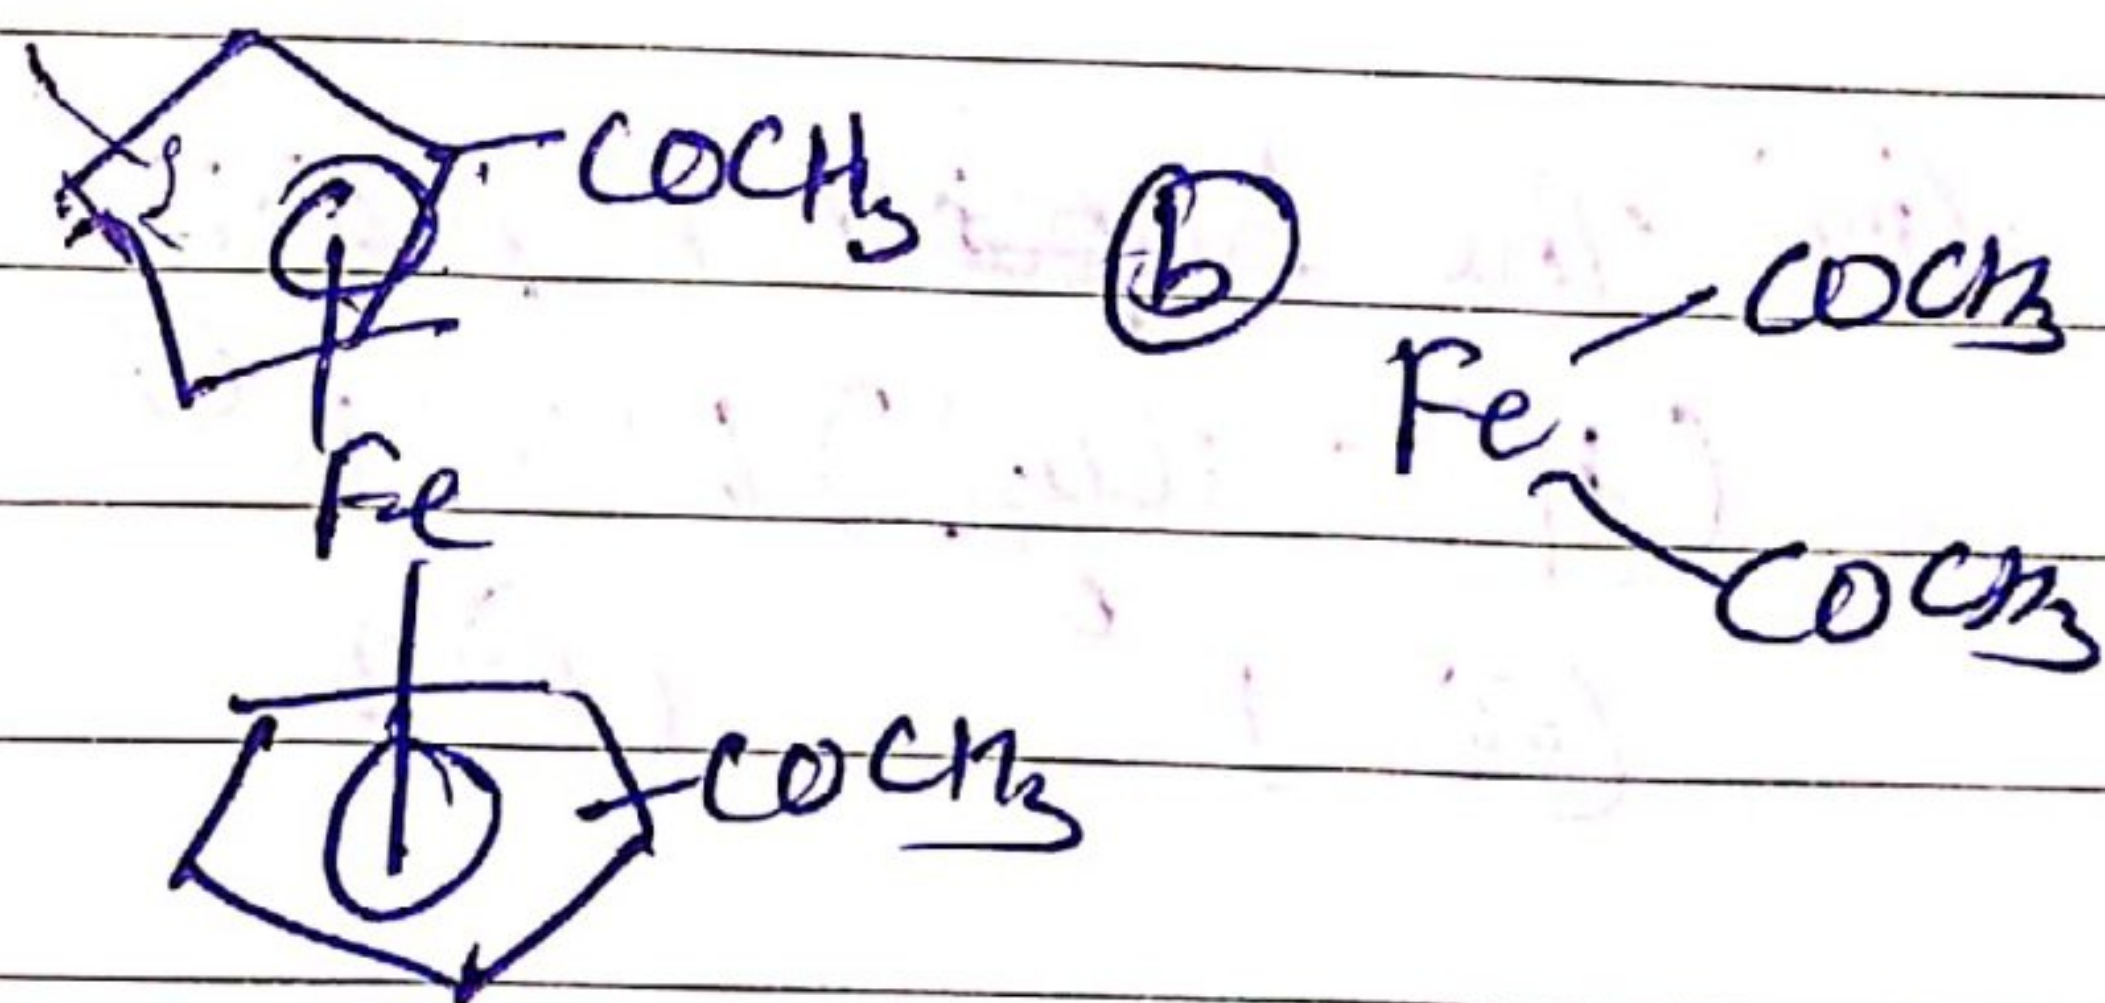 COCH3
b
COCH3
Fe
Fe
COCH3
COCH3